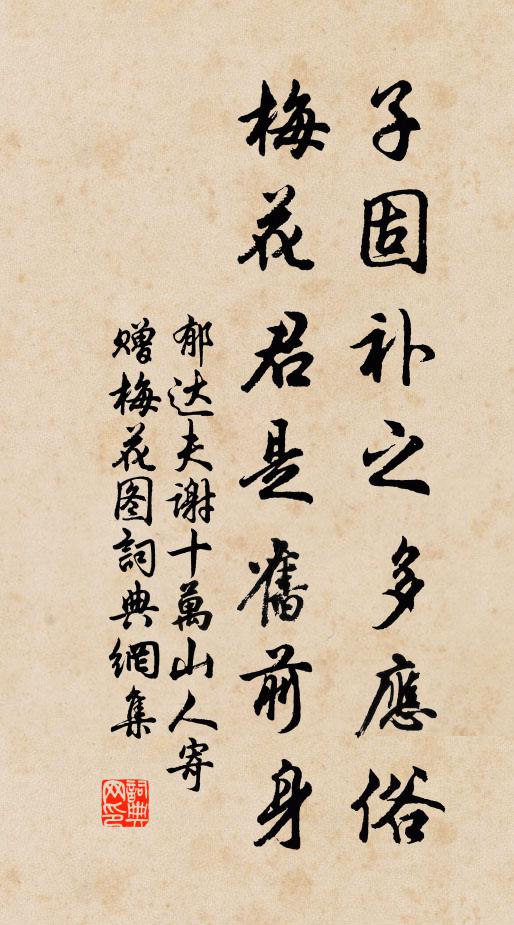 子固补之多應俗
梅花君是舊前身
郁达夫谢十萬山人寄
赠梅花图詞典網集
詞典
网印